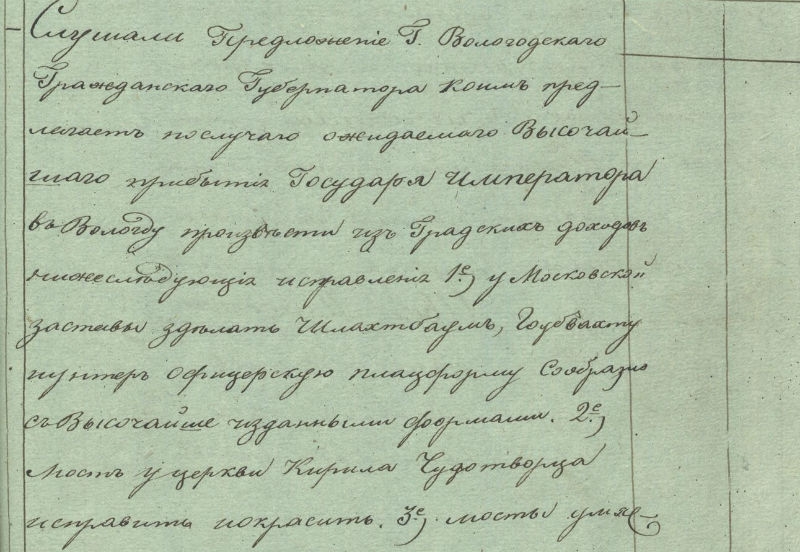 Слушали Предложенiе Г. Вологодскаго
Гражданскаго Губернатора коимъ пред–
лагаетъ послучаю ожидаемаго Высочай–
шаго прибытiя Государя Императора
въ Вологду произвѣсти изъ Градскихъ доходовъ
нижеслѣдующiя исправленiя 1е) у Московской
заставы здѣлать Шлахтбаумъ, Гоубвахту
иунтеръ офицерскую плацформу Сообразно
съ Высочайше изданными формами. 2е)
мостъ у церкви Кирила Чудотворца
исправить ипокрасить. 3е) мосты